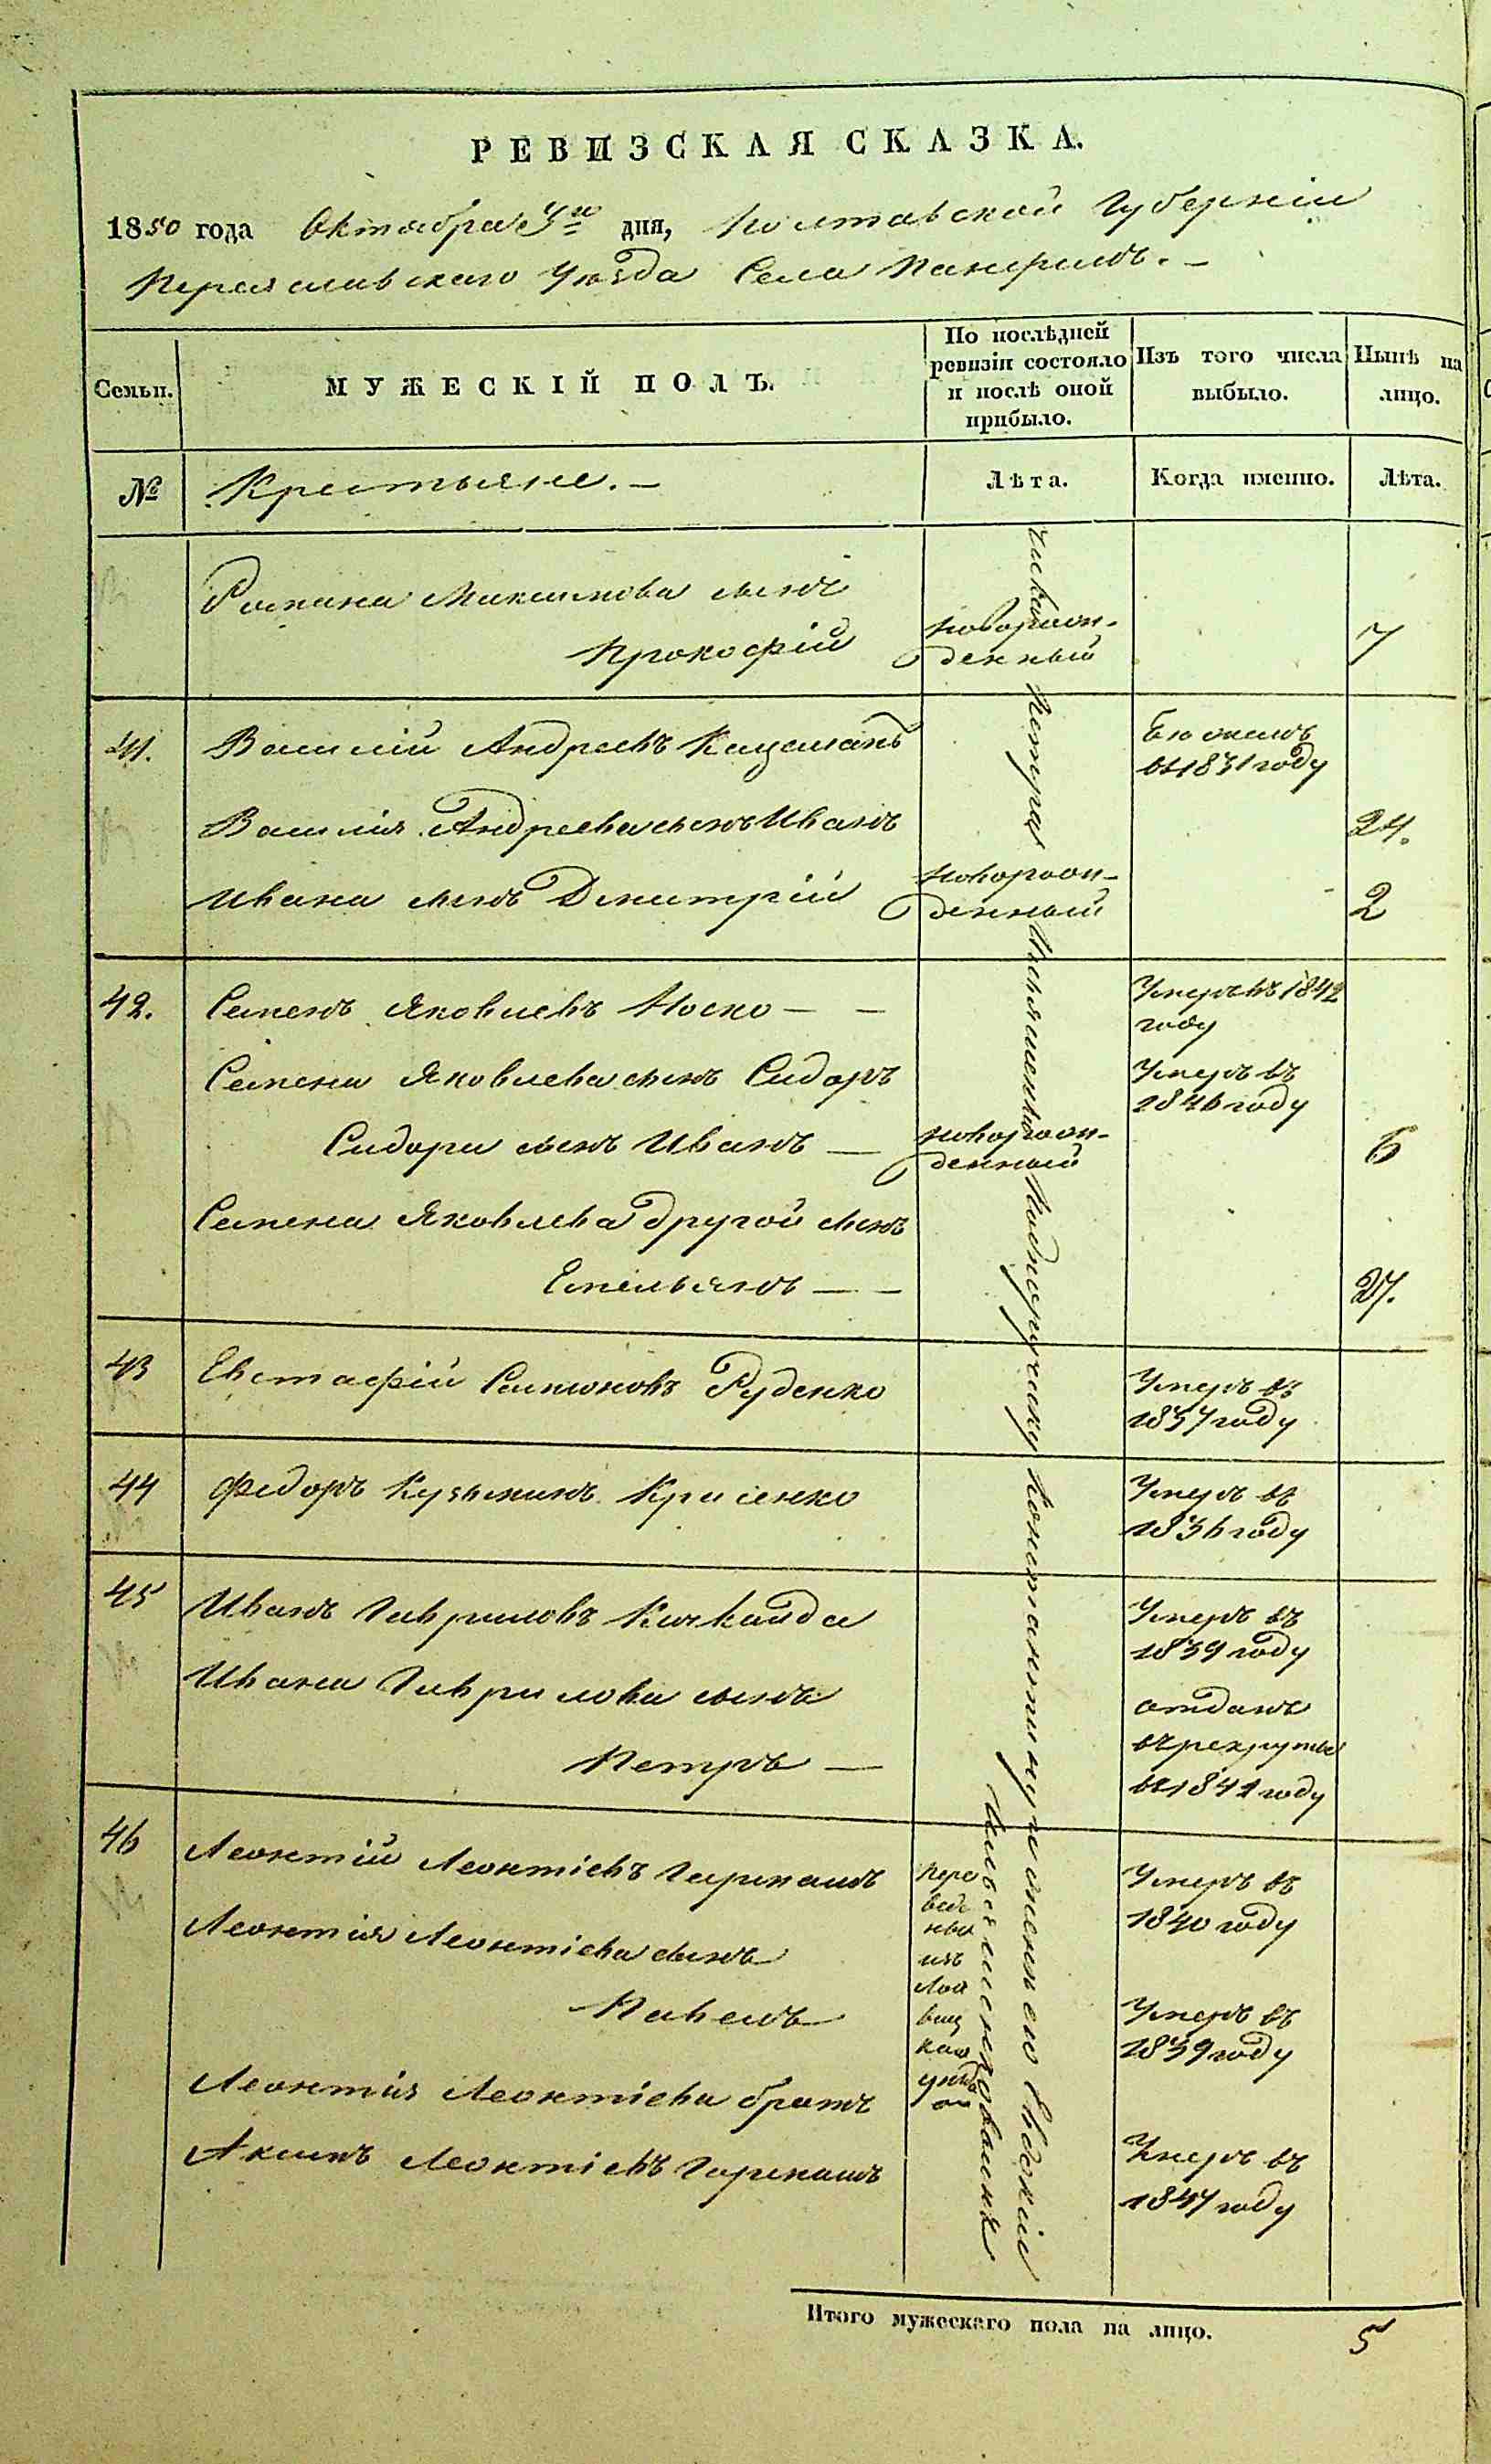 РЕВИЗСКАЯ СКАЗКА.
1850 года Октября дня, Полтавской Губерніи
Переяславскаго Уѣзда Села Панфилъ. —
Семьи.
МУЖЕСКІЙ ПОЛЪ.
По послѣдней ревизіи состояло и послѣ оной прибыло.
Изъ того числа выбыло.
Нынѣ на лицо.
№
Крестьяне. —
Лѣта.
Когда именно.
Лѣта.
Романа Максимова сынъ
Прокофій
новорожденный
7
41.
Василій Андреевъ
Бѣжалъ
въ 1831 году
Василія Андреева сынъ Иванъ
24.
Ивана сынъ Дмитрій
новорожденный
2
42.
Семенъ Яковлевъ Носко — —
Умеръ въ 1842
году
Семена Яковлева сынъ Сидоръ
Умеръ въ
1846 году
Сидора сынъ Иванъ —
новорожденный
6
Семена Яковлева другой сынъ
Емельянъ — —
27.
43
Евстафій Семеновъ Руденко
Умеръ въ
1837 году
44
Федоръ Кузьминъ
Умеръ въ
1836 году
45
Иванъ Гавриловъ
Умеръ въ
1839 году
Ивана Гаврилова сынъ
Петръ —
отданъ
въ рекруты
въ 1841 году
46
Леонтій Леонтіевъ
Умеръ въ
1840 году
Леонтія Леонтіева сынъ
Павелъ
Умеръ въ
1839 году
Леонтія Леонтіева братъ
Акимъ Леонтіевъ
Умеръ въ
1847 году
Переведены изъ уѣзда
Петра
Итого мужескаго пола на лицо.
5